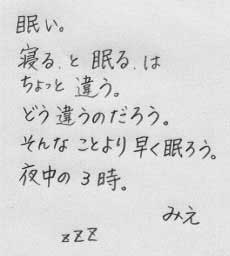 眠い。
寝る、と 眠る、は
ちょっと 違う。
どう 違うのだろう。
そんな ことより 早く眠ろう。
夜中の 3 時。
みえ
zZZ